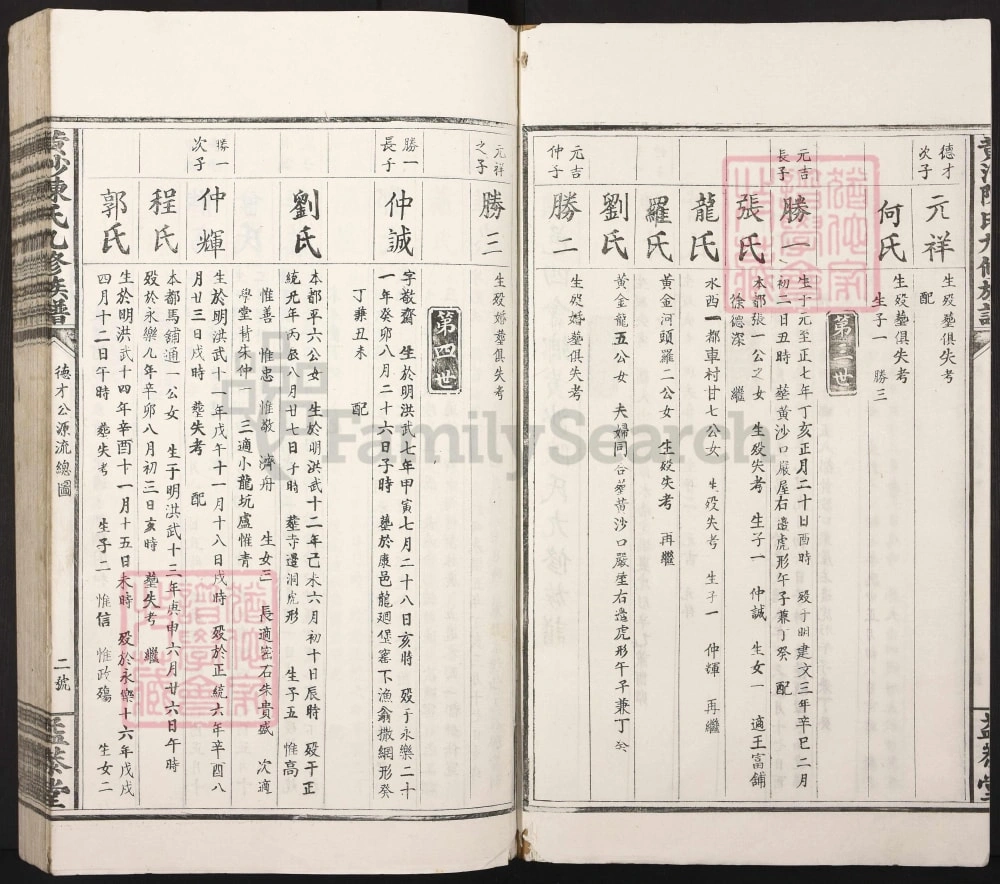 德才次子
元祥
生殁塟俱失考
配
何氏
生殁塟俱失考
生子一 勝三
第三世
元吉長子
勝一
生于元至正七年丁亥正月二十日酉時 殁于明建文三年辛巳二月
初二日丑時 塟黄沙口嚴屋右邉虎形午子兼丁癸 配
張氏
本都張一公之女 生殁失考 生子一 仲誠 生女一 適王富舖
徐德深 繼
龍氏
水西一都車村甘七公女 生殁失考 生子一 仲輝 再繼
羅氏
黄金河頭羅二公女 生殁失考 再繼
劉氏
黄金龍五公女 夫婦同合塟黄沙口嚴屋右邉虎形午子兼丁癸
元吉仲子
勝二
生殁婚塟俱失考
元祥之子
勝三
生殁婚塟俱失考
第四世
勝一長子
仲誠
字敬齋 生於明洪武七年甲寅七月二十八日亥時 殁于永樂二十
一年癸卯八月二十六日子時 塟於康邑龍廻堡窰下漁翁撒網形癸
丁兼丑未 配
劉氏
本都平六公女 生於明洪武十二年己未六月初十日辰時 殁于正
統元年丙辰八月廿七日子時 塟寺邊洞虎形 生子五 惟高
惟善 惟忠 惟敬 濟舟 生女三 長適密石朱貴盛 次適
學堂背朱仲一 三適小龍坑盧惟青
勝一次子
仲輝
生於明洪武十一年戊午十一月十八日戌時 殁於正統六年辛酉八
月廿三日戌時 塟失考 配
程氏
本都馬舖通一公女 生于明洪武十三年庚申六月廿六日午時
殁於永樂九年辛卯八月初三日亥時 塟失考 繼
郭氏
生於明洪武十四年辛酉十一月十五日未時 殁於永樂十六年戊戌
四月十二日午時 塟失考 生子二 惟信 惟政殤 生女二
黄沙陳氏九修族譜
德才公源流總圖
二號
FamilySearch